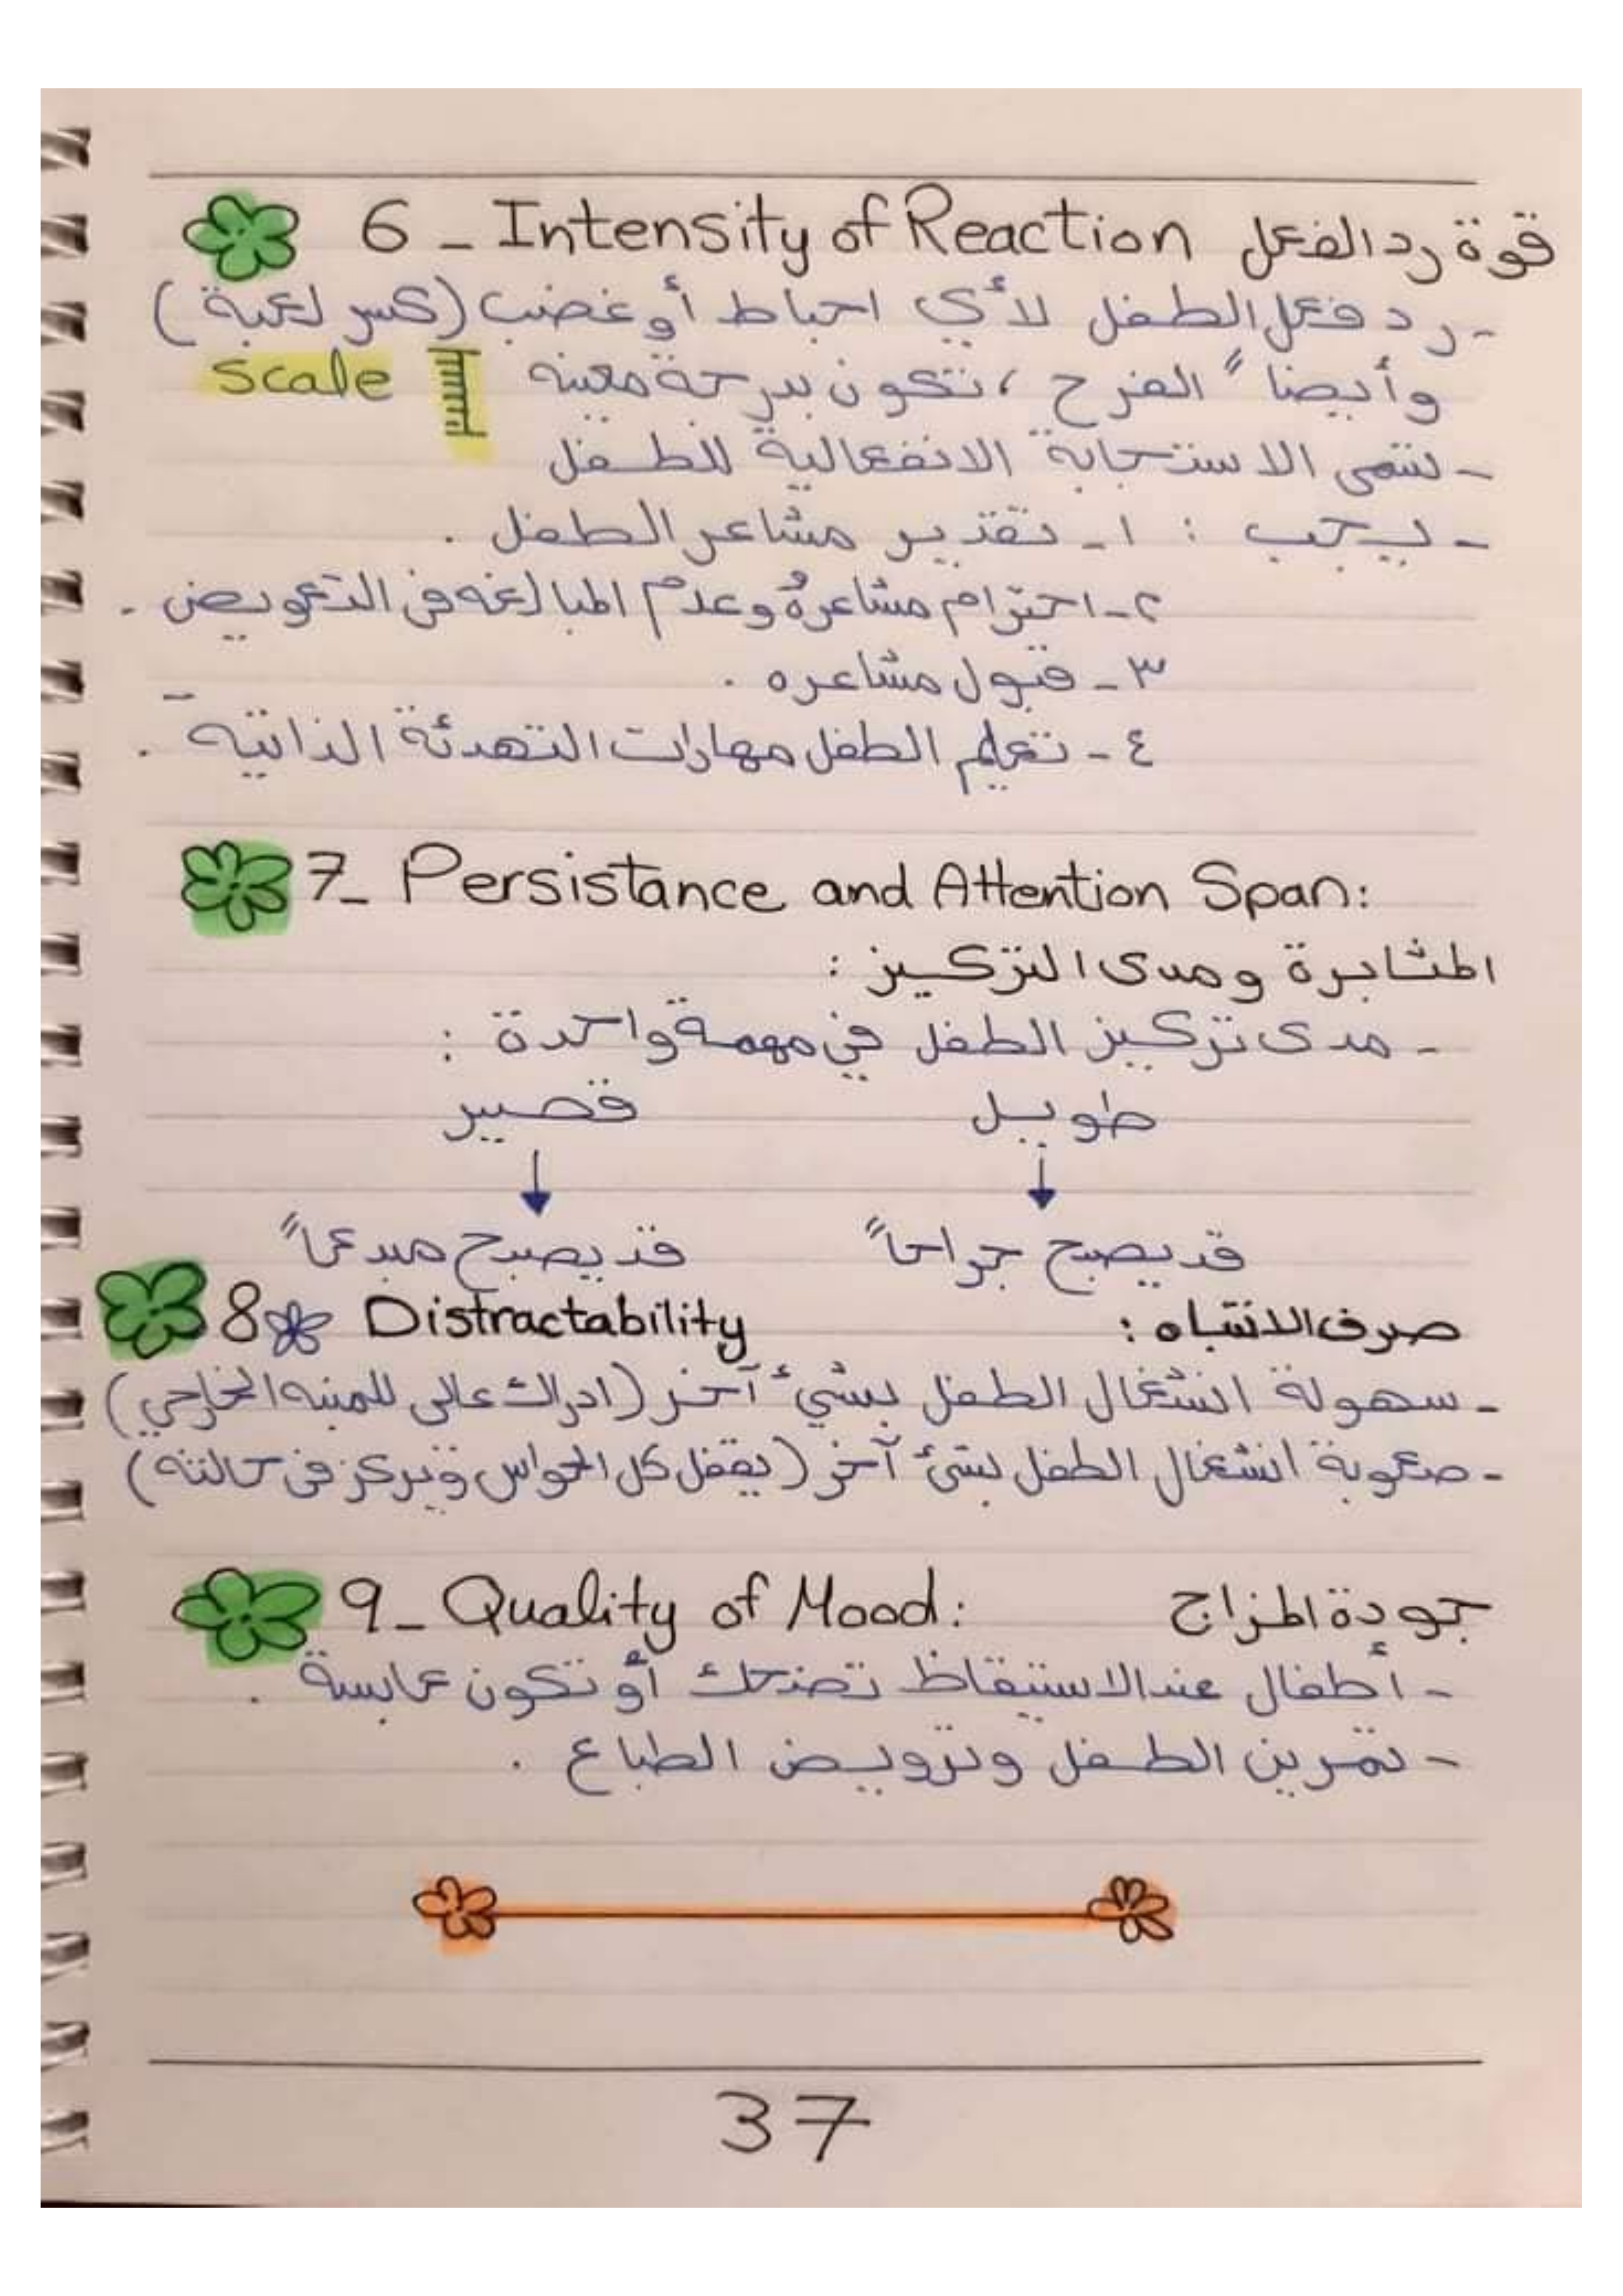 6 - Intensity of Reaction قوة رد الفعل
- رد فعل الطفل لأي احباط أو غضب (كسر لعبة)
وأيضاً الفرح ، تكون بدرجة معينه scale
- تسمى الاستجابة الانفعالية للطفل
- يجب : ١- تقدير مشاعر الطفل .
٢- احترام مشاعره وعدم المبالغه في التعويض .
٣- قبول مشاعره .
٤- تعليم الطفل مهارات التهدئة الذاتية .
7- Persistance and Attention Span:
المثابرة ومدى التركيز :
- مدى تركيز الطفل في مهمة واحدة :
طويل قصير
قد يصبح جراحاً قد يصبح مبدعاً
8 Distractability صرف الانتباه :
- سهولة انشغال الطفل بشيء آخر (ادراك عالى للمنبه الخارجي)
- صعوبة انشغال الطفل بشئ آخر (يقفل كل الحواس ويركز في حالته)
9- Quality of Mood: جودة المزاج
- أطفال عند الاستيقاظ تضحك أو تكون عابسة .
- تمرين الطفل وترويض الطباع .
37